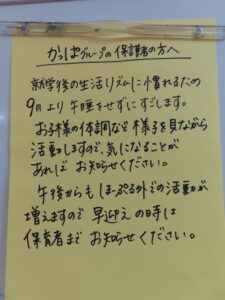 かっぱグループの保護者の方へ
就学後の生活リズムに慣れるため
9月より午睡をせずにすごします。
お子様の体調など様子を見ながら
活動しますので、気になることが
あれば お知らせください。
午後からも ほーぷる外での活動が
増えますので 早迎えの時は
保育者まで お知らせください。